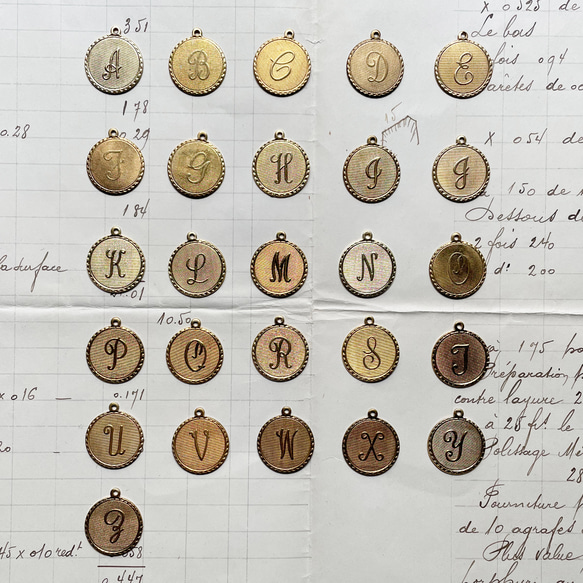 351
x 0525 de
Le bas
fois 094
arêtes de
A B C D E
178
15
0.28
0.29
x 054 de
F G H I J
184
à 150 de
Dessous d
2 fois 240
la surface
K L M N O
d° 200
.01
10.50
P Q R S T
à 175 po
Préparation p
x 016 — 0.171
contre layure 2
U V W X Y
à 28 fr. le
Polissage Mé
28
Fourniture p
de 10 agrafes
Z
45 x 010 red.t
Plus value
0.447